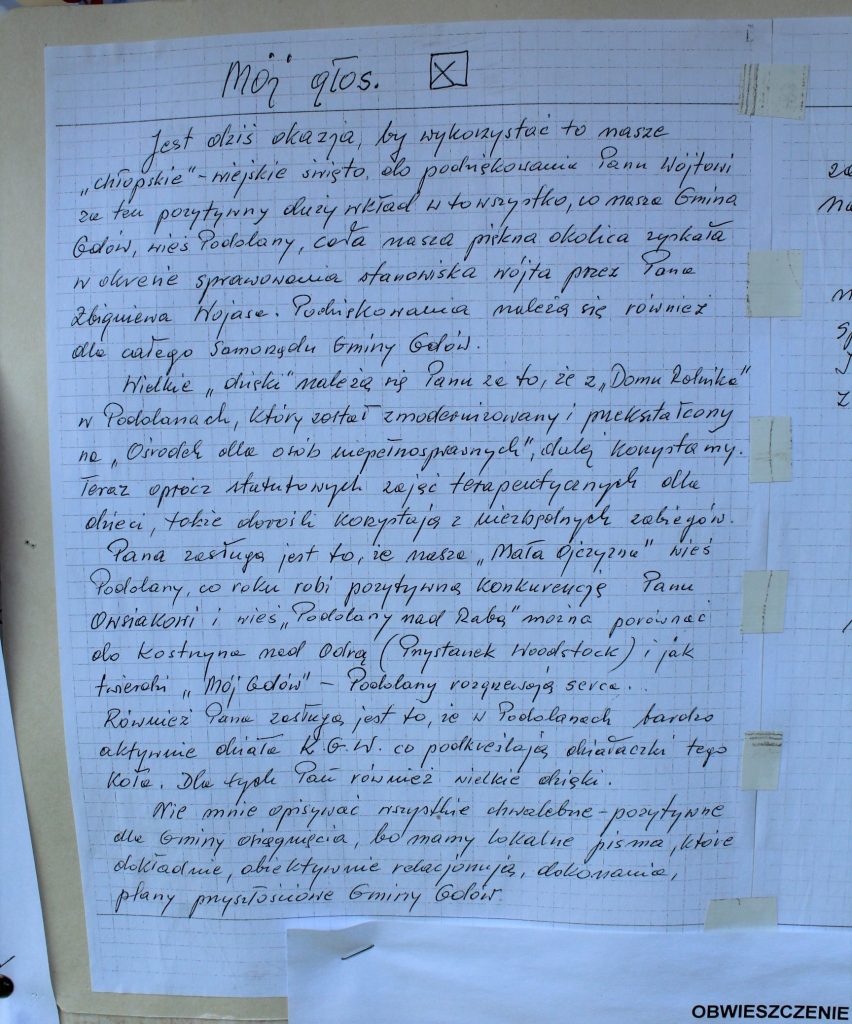 Mój głos. ☒
Jest dziś okazja, by wykorzystać to nasze
„chłopskie" - wiejskie święto, do podziękowania Panu Wójtowi
za ten pozytywny duży wkład w to wszystko, co nasza Gmina
Gdów, wieś Podolany, cała nasza piękna okolica zyskała
w okresie sprawowania stanowiska wójta przez Pana
Zbigniewa Wojasa. Podziękowania należą się również
dla całego Samorządu Gminy Gdów.
Wielkie „dzięki" należą się Panu za to, że z „Domu Rolnika"
w Podolanach, który został zmodernizowany i przekształcony
na „Ośrodek dla osób niepełnosprawnych", dalej korzystamy.
Teraz oprócz statutowych zajęć terapeutycznych dla
dzieci, także dorośli korzystają z niezbędnych zabiegów.
Pana zasługą jest to, że nasza „Mała Ojczyzna" wieś
Podolany, co roku robi pozytywną konkurencję Panu
Owsiakowi i wieś „Podolany nad Rabą" można porównać
do Kostrzyna nad Odrą (Przystanek Woodstock) i jak
twierdzi „Mój Gdów" - Podolany rozgrzewają serca...
Również Pana zasługą jest to, że w Podolanach bardzo
aktywnie działa K.G.W. co podkreślają działaczki tego
Koła. Dla tych Pań również wielkie dzięki.
Nie mnie opisywać wszystkie chwalebne - pozytywne
dla Gminy osiągnięcia, bo mamy lokalne pisma, które
dokładnie, obiektywnie relacjonują, dokonania,
plany przyszłościowe Gminy Gdów.
OBWIESZCZENIE